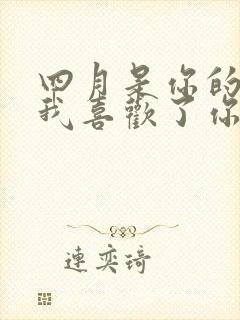 四月是你的
我喜歡了你
連奕琦